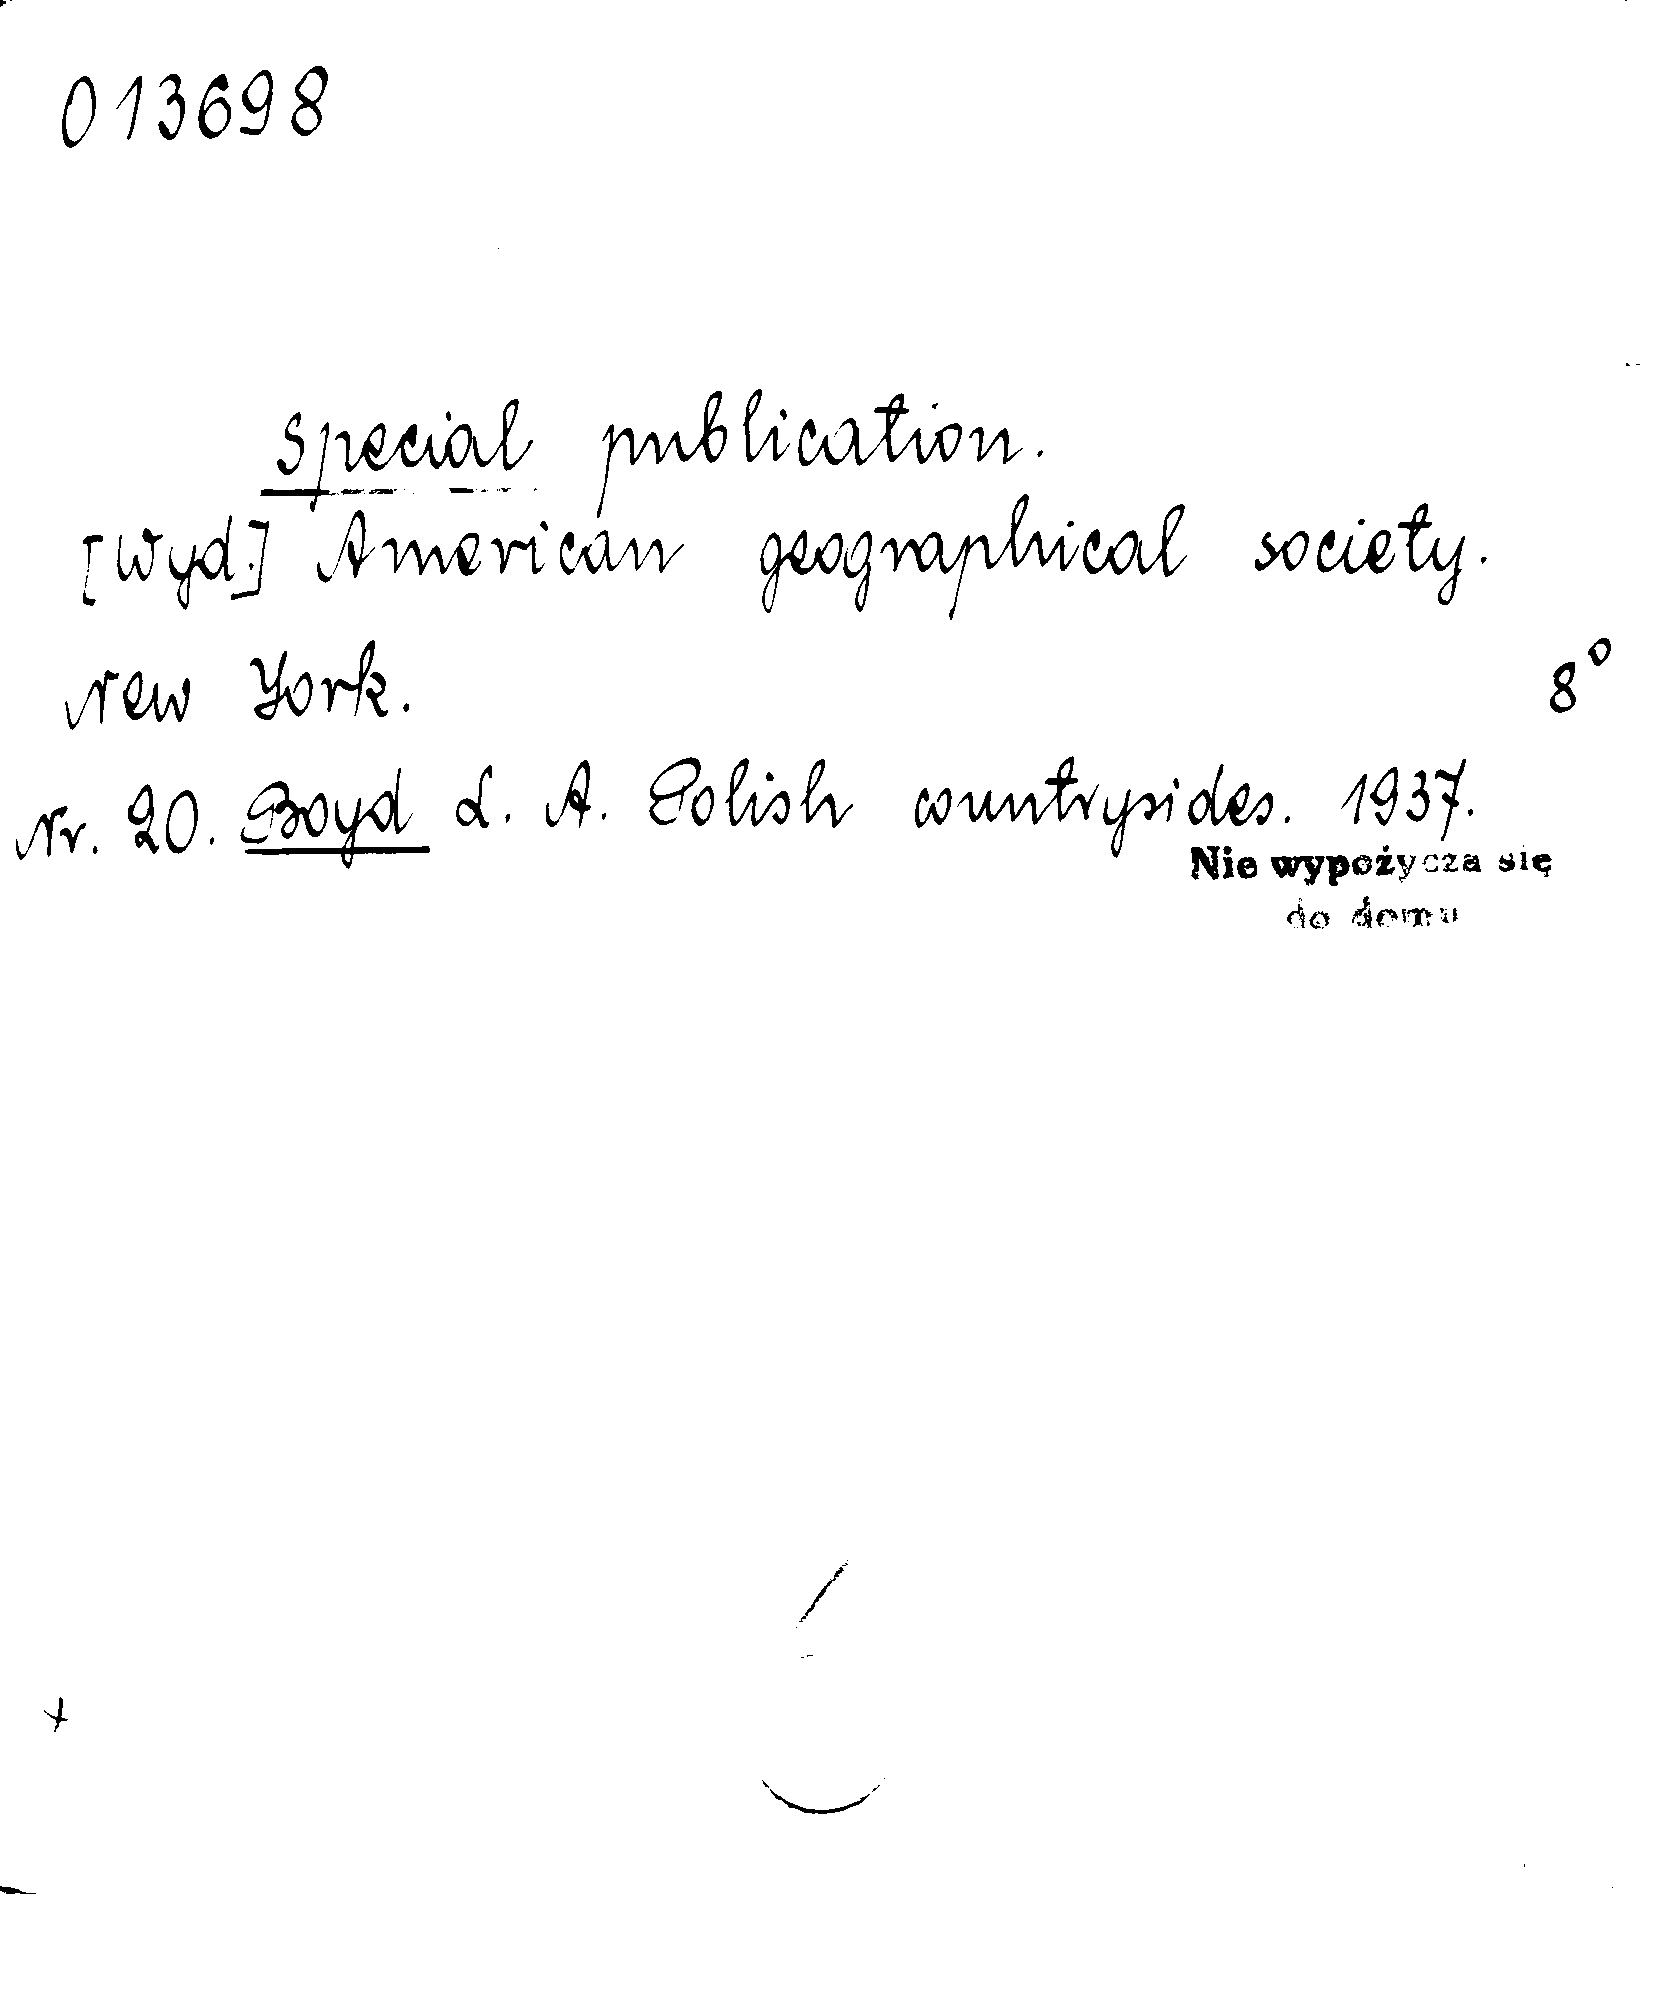 013698
Special publication.
[Wyd.] American geographical society.
New York. 8°
Nr. 20. Boyd L. A. Polish countrysides. 1937.
Nie wypożycza się
do domu